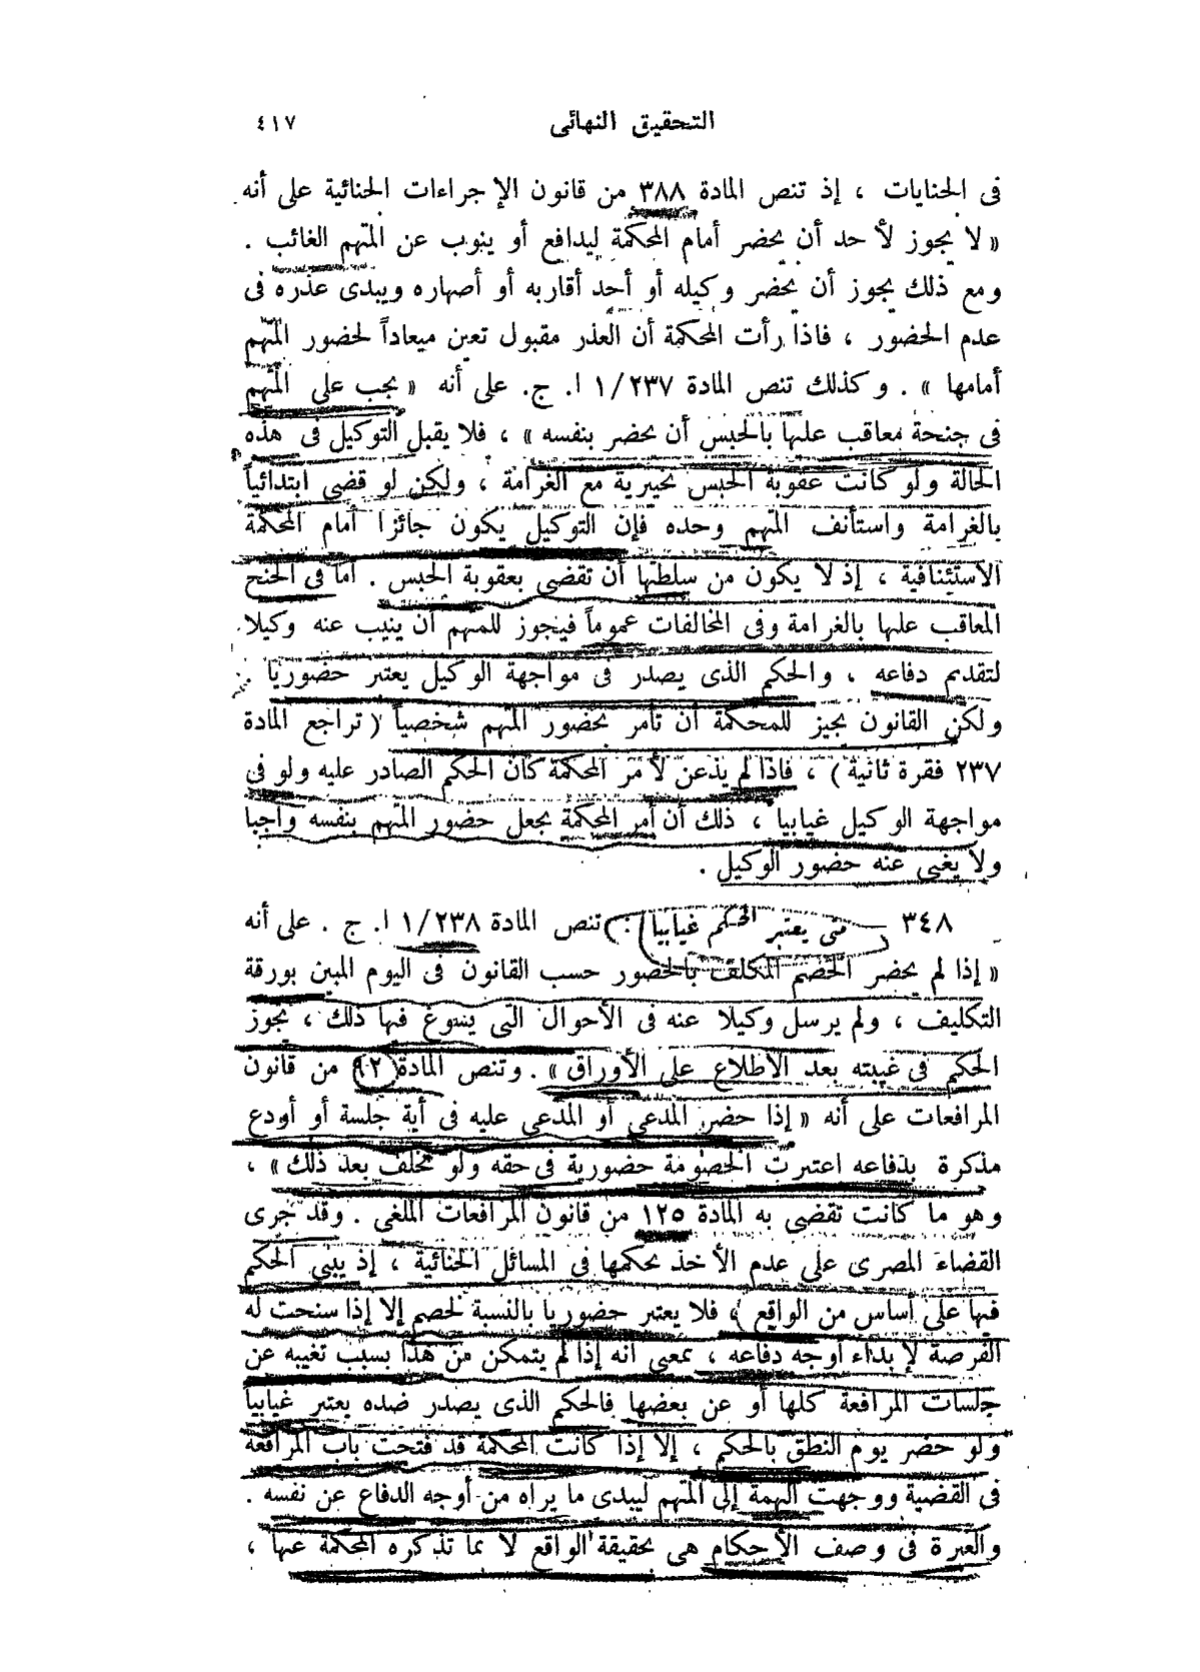 التحقيق النهائى ٤١٧
فى الجنايات ، إذ تنص المادة ٣٨٨ من قانون الإجراءات الجنائية على أنه
« لا يجوز لأحد أن يحضر أمام المحكمة ليدافع أو ينوب عن المتهم الغائب .
ومع ذلك يجوز أن يحضر وكيله أو أحد أقاربه أو أصهاره ويبدى عذره فى
عدم الحضور ، فاذا رأت المحكمة أن العذر مقبول تعين ميعاداً لحضور المتهم
أمامها » . وكذلك تنص المادة ١/٢٣٧ ا. ج. على أنه « يجب على المتهم
فى جنحة معاقب عليها بالحبس أن يحضر بنفسه » ، فلا يقبل التوكيل فى هذه
الحالة ولو كانت عقوبة الحبس تخييرية مع الغرامة ، ولكن لو قضى ابتدائياً
بالغرامة واستأنف المتهم وحده فإن التوكيل يكون جائزا أمام المحكمة
الاستئنافية ، إذ لا يكون من سلطتها أن تقضى بعقوبة الحبس . أما فى الجنح
المعاقب عليها بالغرامة وفى المخالفات عموماً فيجوز للمتهم أن ينيب عنه وكيلا
لتقديم دفاعه ، والحكم الذى يصدر فى مواجهة الوكيل يعتبر حضوريا .
ولكن القانون يجيز للمحكمة أن تأمر بحضور المتهم شخصياً ( تراجع المادة
٢٣٧ فقرة ثانية ) ، فاذا لم يذعن لأمر المحكمة كان الحكم الصادر عليه ولو فى
مواجهة الوكيل غيابيا ، ذلك أن أمر المحكمة يجعل حضور المتهم بنفسه واجبا
ولا يغنى عنه حضور الوكيل .
٣٤٨ — متى يعتبر الحكم غيابيا : تنص المادة ١/٢٣٨ ا. ج . على أنه
« إذا لم يحضر الخصم المكلف بالحضور حسب القانون فى اليوم المبين بورقة
التكليف ، ولم يرسل وكيلا عنه فى الأحوال التى يسوغ فيها ذلك ، يجوز
الحكم فى غيبته بعد الاطلاع على الأوراق » . وتنص المادة ٩٢ من قانون
المرافعات على أنه « إذا حضر المدعى أو المدعى عليه فى أية جلسة أو أودع
مذكرة بدفاعه اعتبرت الخصومة حضورية فى حقه ولو تخلف بعد ذلك » ،
وهو ما كانت تقضى به المادة ١٢٥ من قانون المرافعات الملغى . وقد جرى
القضاء المصرى على عدم الأخذ بحكمها فى المسائل الجنائية ، إذ يبنى الحكم
فيها على أساس من الواقع ، فلا يعتبر حضوريا بالنسبة لخصم إلا إذا سنحت له
الفرصة لإبداء أوجه دفاعه ، بمعنى أنه إذا لم يتمكن من هذا بسبب تغيبه عن
جلسات المرافعة كلها أو عن بعضها فالحكم الذى يصدر ضده يعتبر غيابيا
ولو حضر يوم النطق بالحكم ، إلا إذا كانت المحكمة قد فتحت باب المرافعة
فى القضية ووجهت التهمة إلى المتهم ليبدى ما يراه من أوجه الدفاع عن نفسه .
والعبرة فى وصف الأحكام هى بحقيقة الواقع لا بما تذكره المحكمة عنها ،